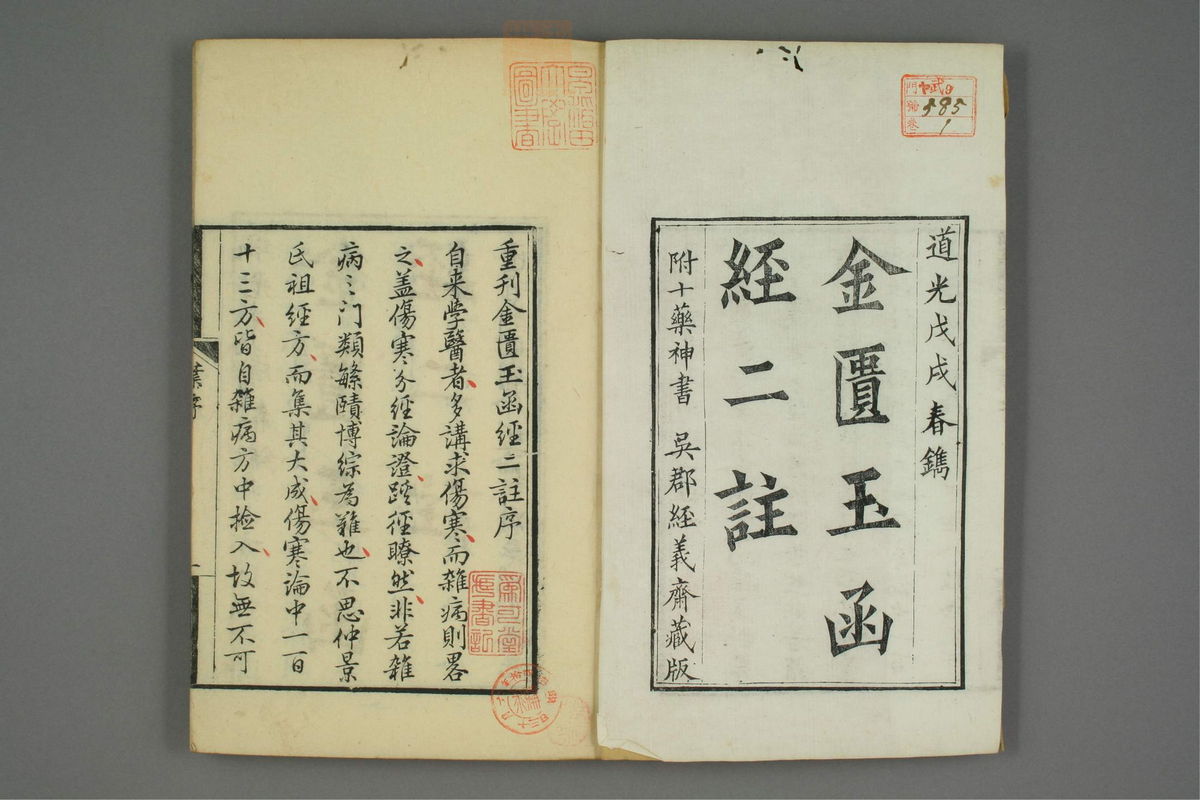 道光戊戌春鐫
金匱玉函
經二註
附十藥神書 吳郡經義齋藏版
門 弐9
號 585
卷 1
重刊金匱玉函經二註序
自来学醫者多講求傷寒而雜病則畧
之盖傷寒分經論證蹊徑瞭然非若雜
病〻門類繁賾博綜為難也不思仲景
氏祖經方而集其大成傷寒論中一百
十三方皆自雜病方中撿入故無不可
圖書
葉序